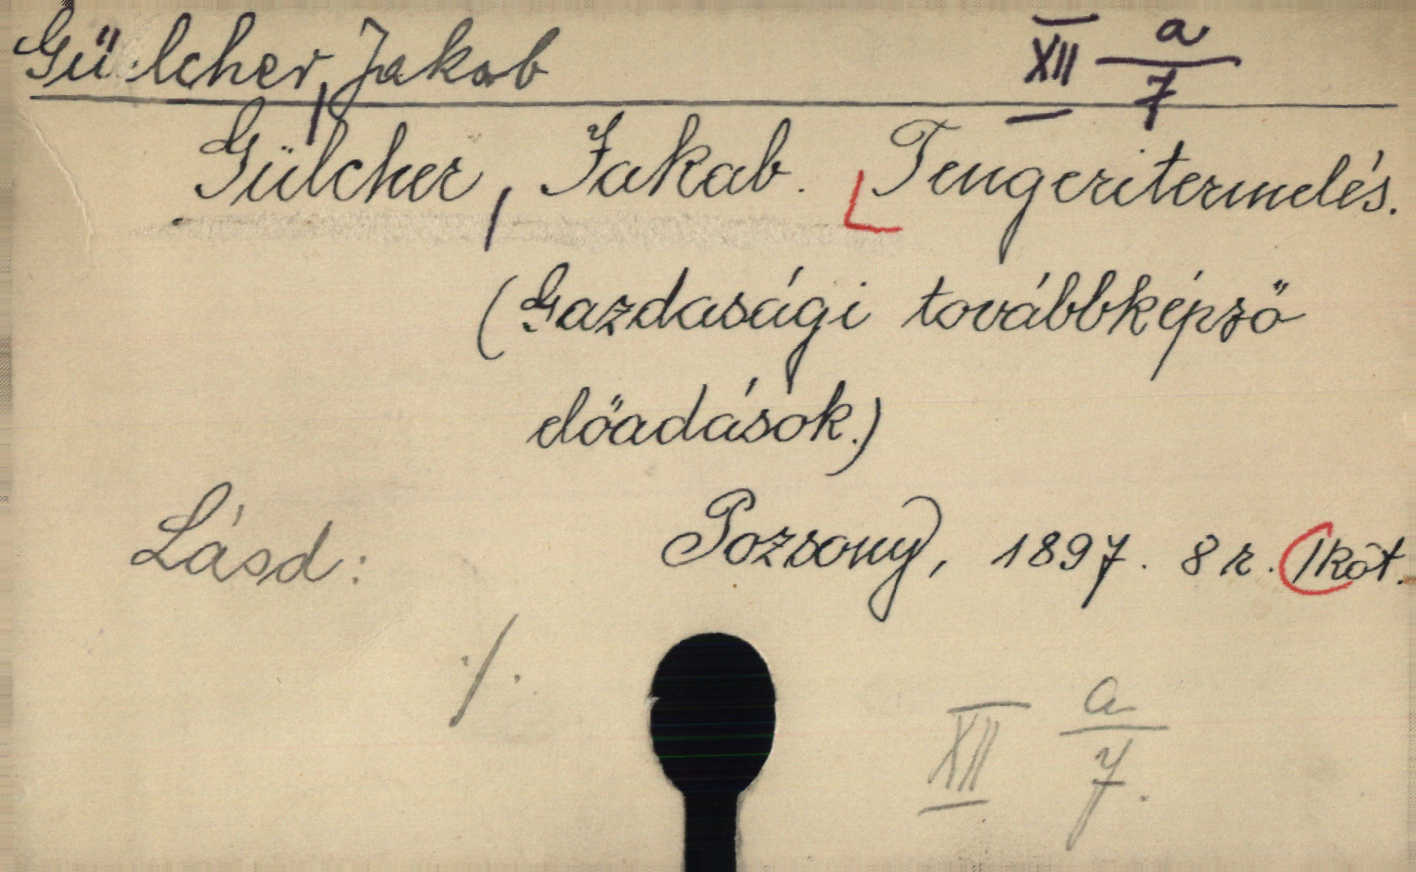 Gülcher, Jakab XII a/7
Gülcher, Jakab. Tengeritermelés.
(Gazdasági továbbképző
előadások.)
Lásd: Pozsony, 1897. 8 r. 1 köt.
·/.
XII a/7.